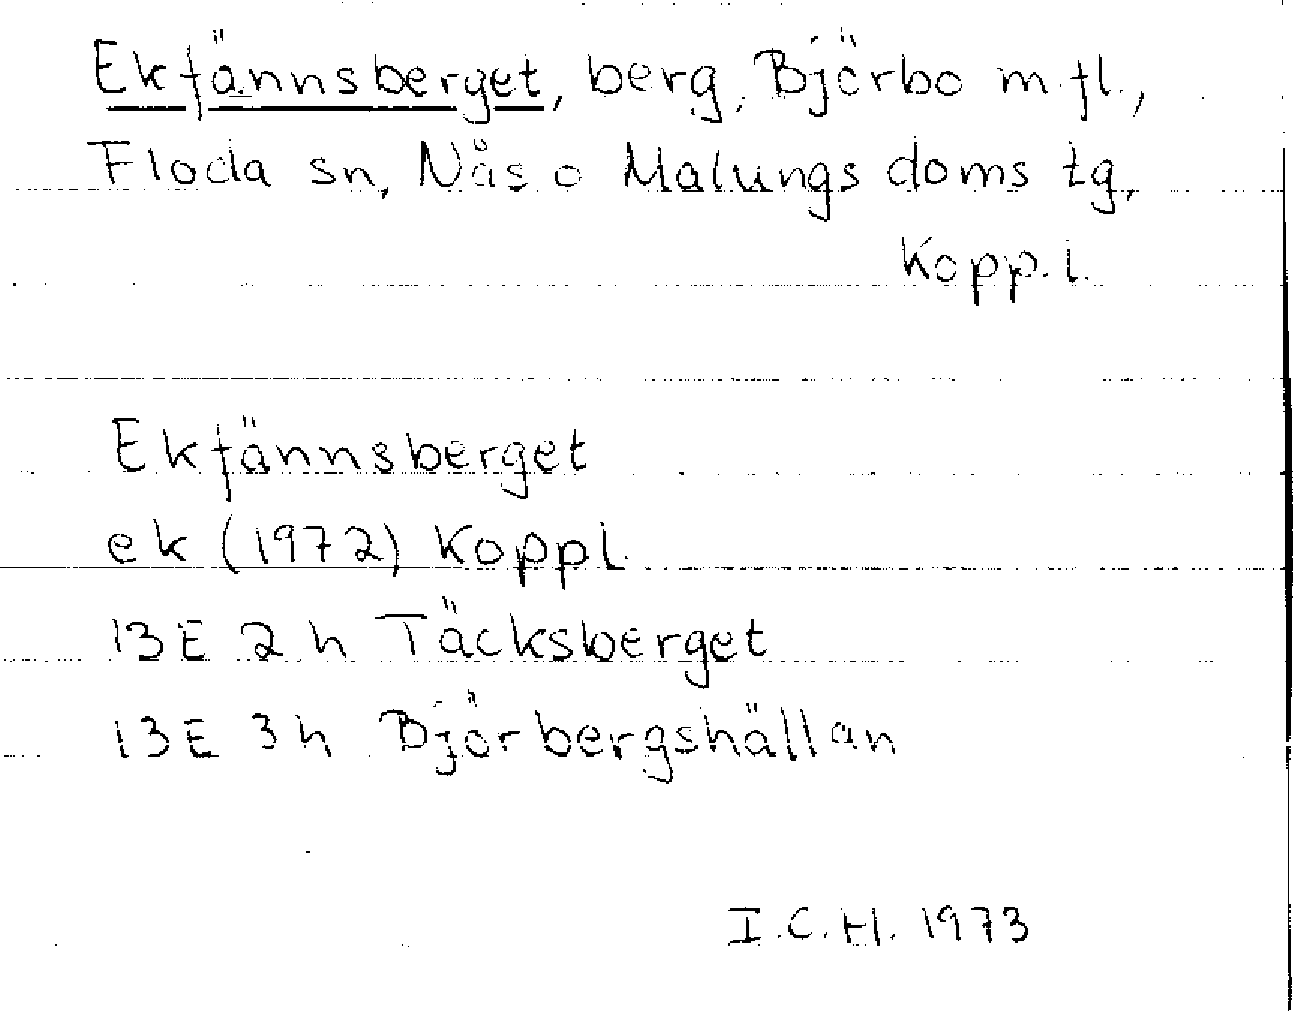 Ekfännsberget, berg, Björbo m.fl.,
Floda sn, Nås o Malungs doms tg,
Kopp. l.
Ekfännsberget
ek (1972) Koppl.
13E 2h Täcksberget
13E 3h Björbergshällan
I.C.H. 1973